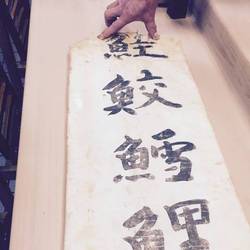 鮭
鮫
鱈
鯉